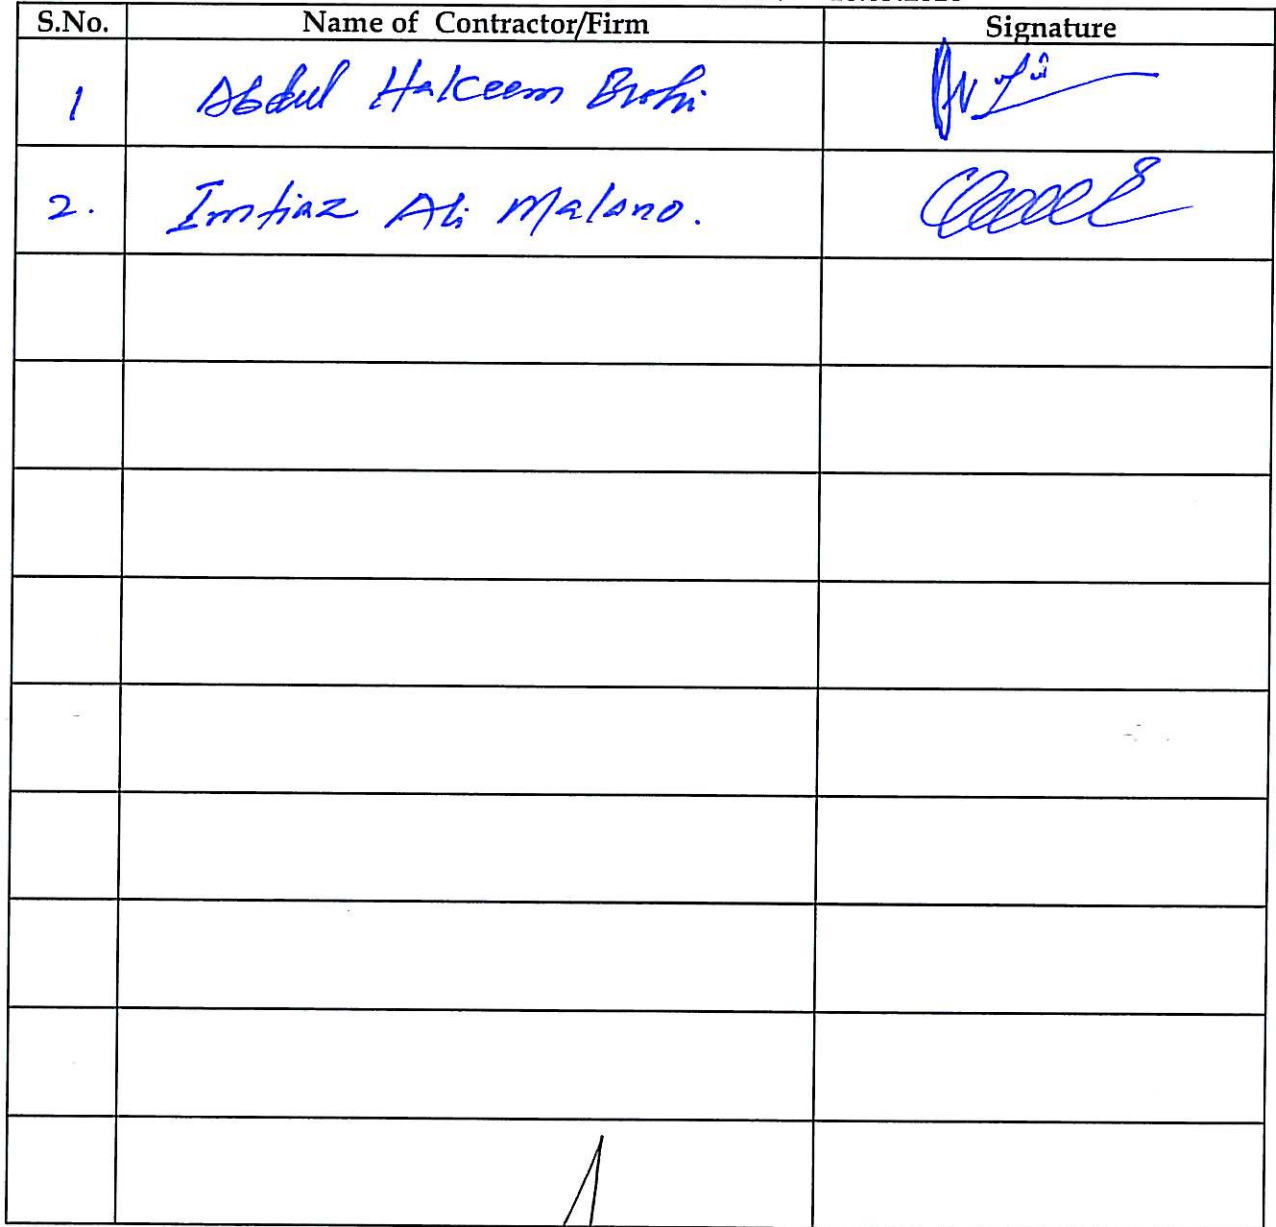 S.No. Name of Contractor/Firm Signature
1 Abdul Hakeem Brohi
2. Imtiaz Ali Malano.